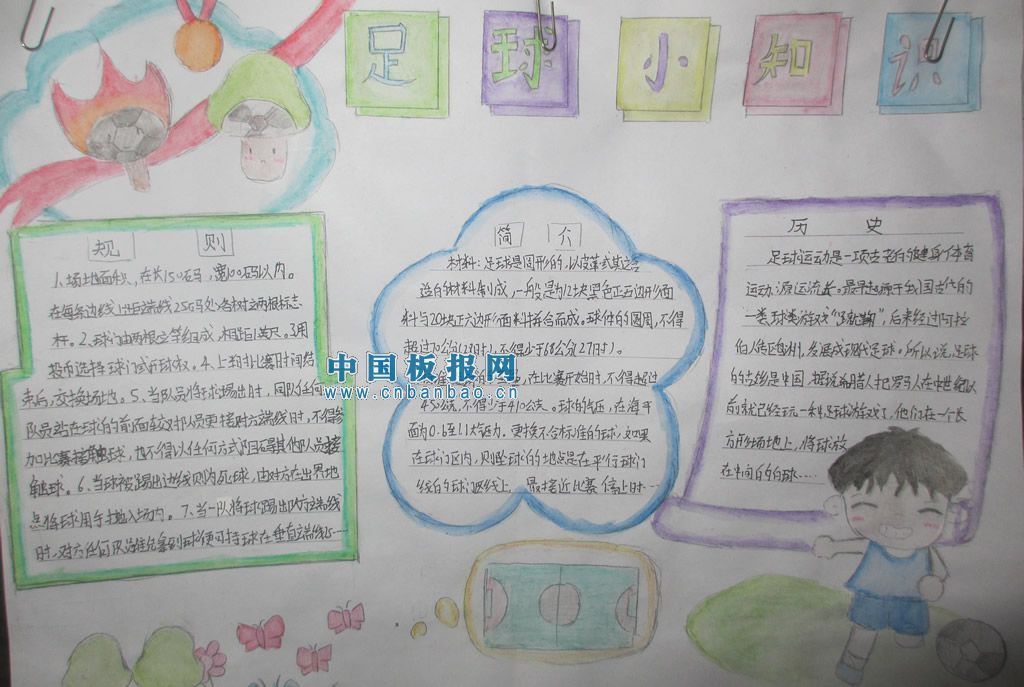 足球小知识
规则
1、场地面积,在长150码,宽100码以内。
在每条边线
杆。2、球门由两根立
投币选择球门或开球权。4、上半时比赛时间结
束后,交换场地。5、当队员将球踢出时,同队任何
队员站在球的前面较对队员更接对方端线时,不得参
加比赛接触球,也不得以任何方式阻碍其他队员接
触球。6、当球被踢出边线则为死球,由对方在出界地
点将球用手掷入场内。7、当一队将球踢出队方端线
时,对方任何队员
简介
材料:足球是圆形的,以皮革或其它合
适的材料制成,一般是为12块黑色正五边形面
料与20块正六边形面料拼合而成。球体的圆周,不得
超过70公分(28吋),不得少于68公分(27吋)。
在比赛开始时,不得超过
450克,不得少于410公克。球的气压,在海平
面为0.6至1.1大气压。更换不合标准的球,如果
在球门区内,则坠球的地点是在平行球门
线的球门区线上,最接近比赛停止时…
历史
足球运动是一项古老的健身体育
运动,源远流长。最早起源于我国古代的
一类球类游戏“蹴鞠”,后来经过阿拉
伯人传西欧洲,发展成现代足球。所以说,足球
的故乡是中国。据说,希腊人和罗马人在中世纪以
前就已经玩一种足球游戏了。他们在一个长
方形场地上,将球放
在中间的白球……
中国板报网
www.cnbanbao.cn